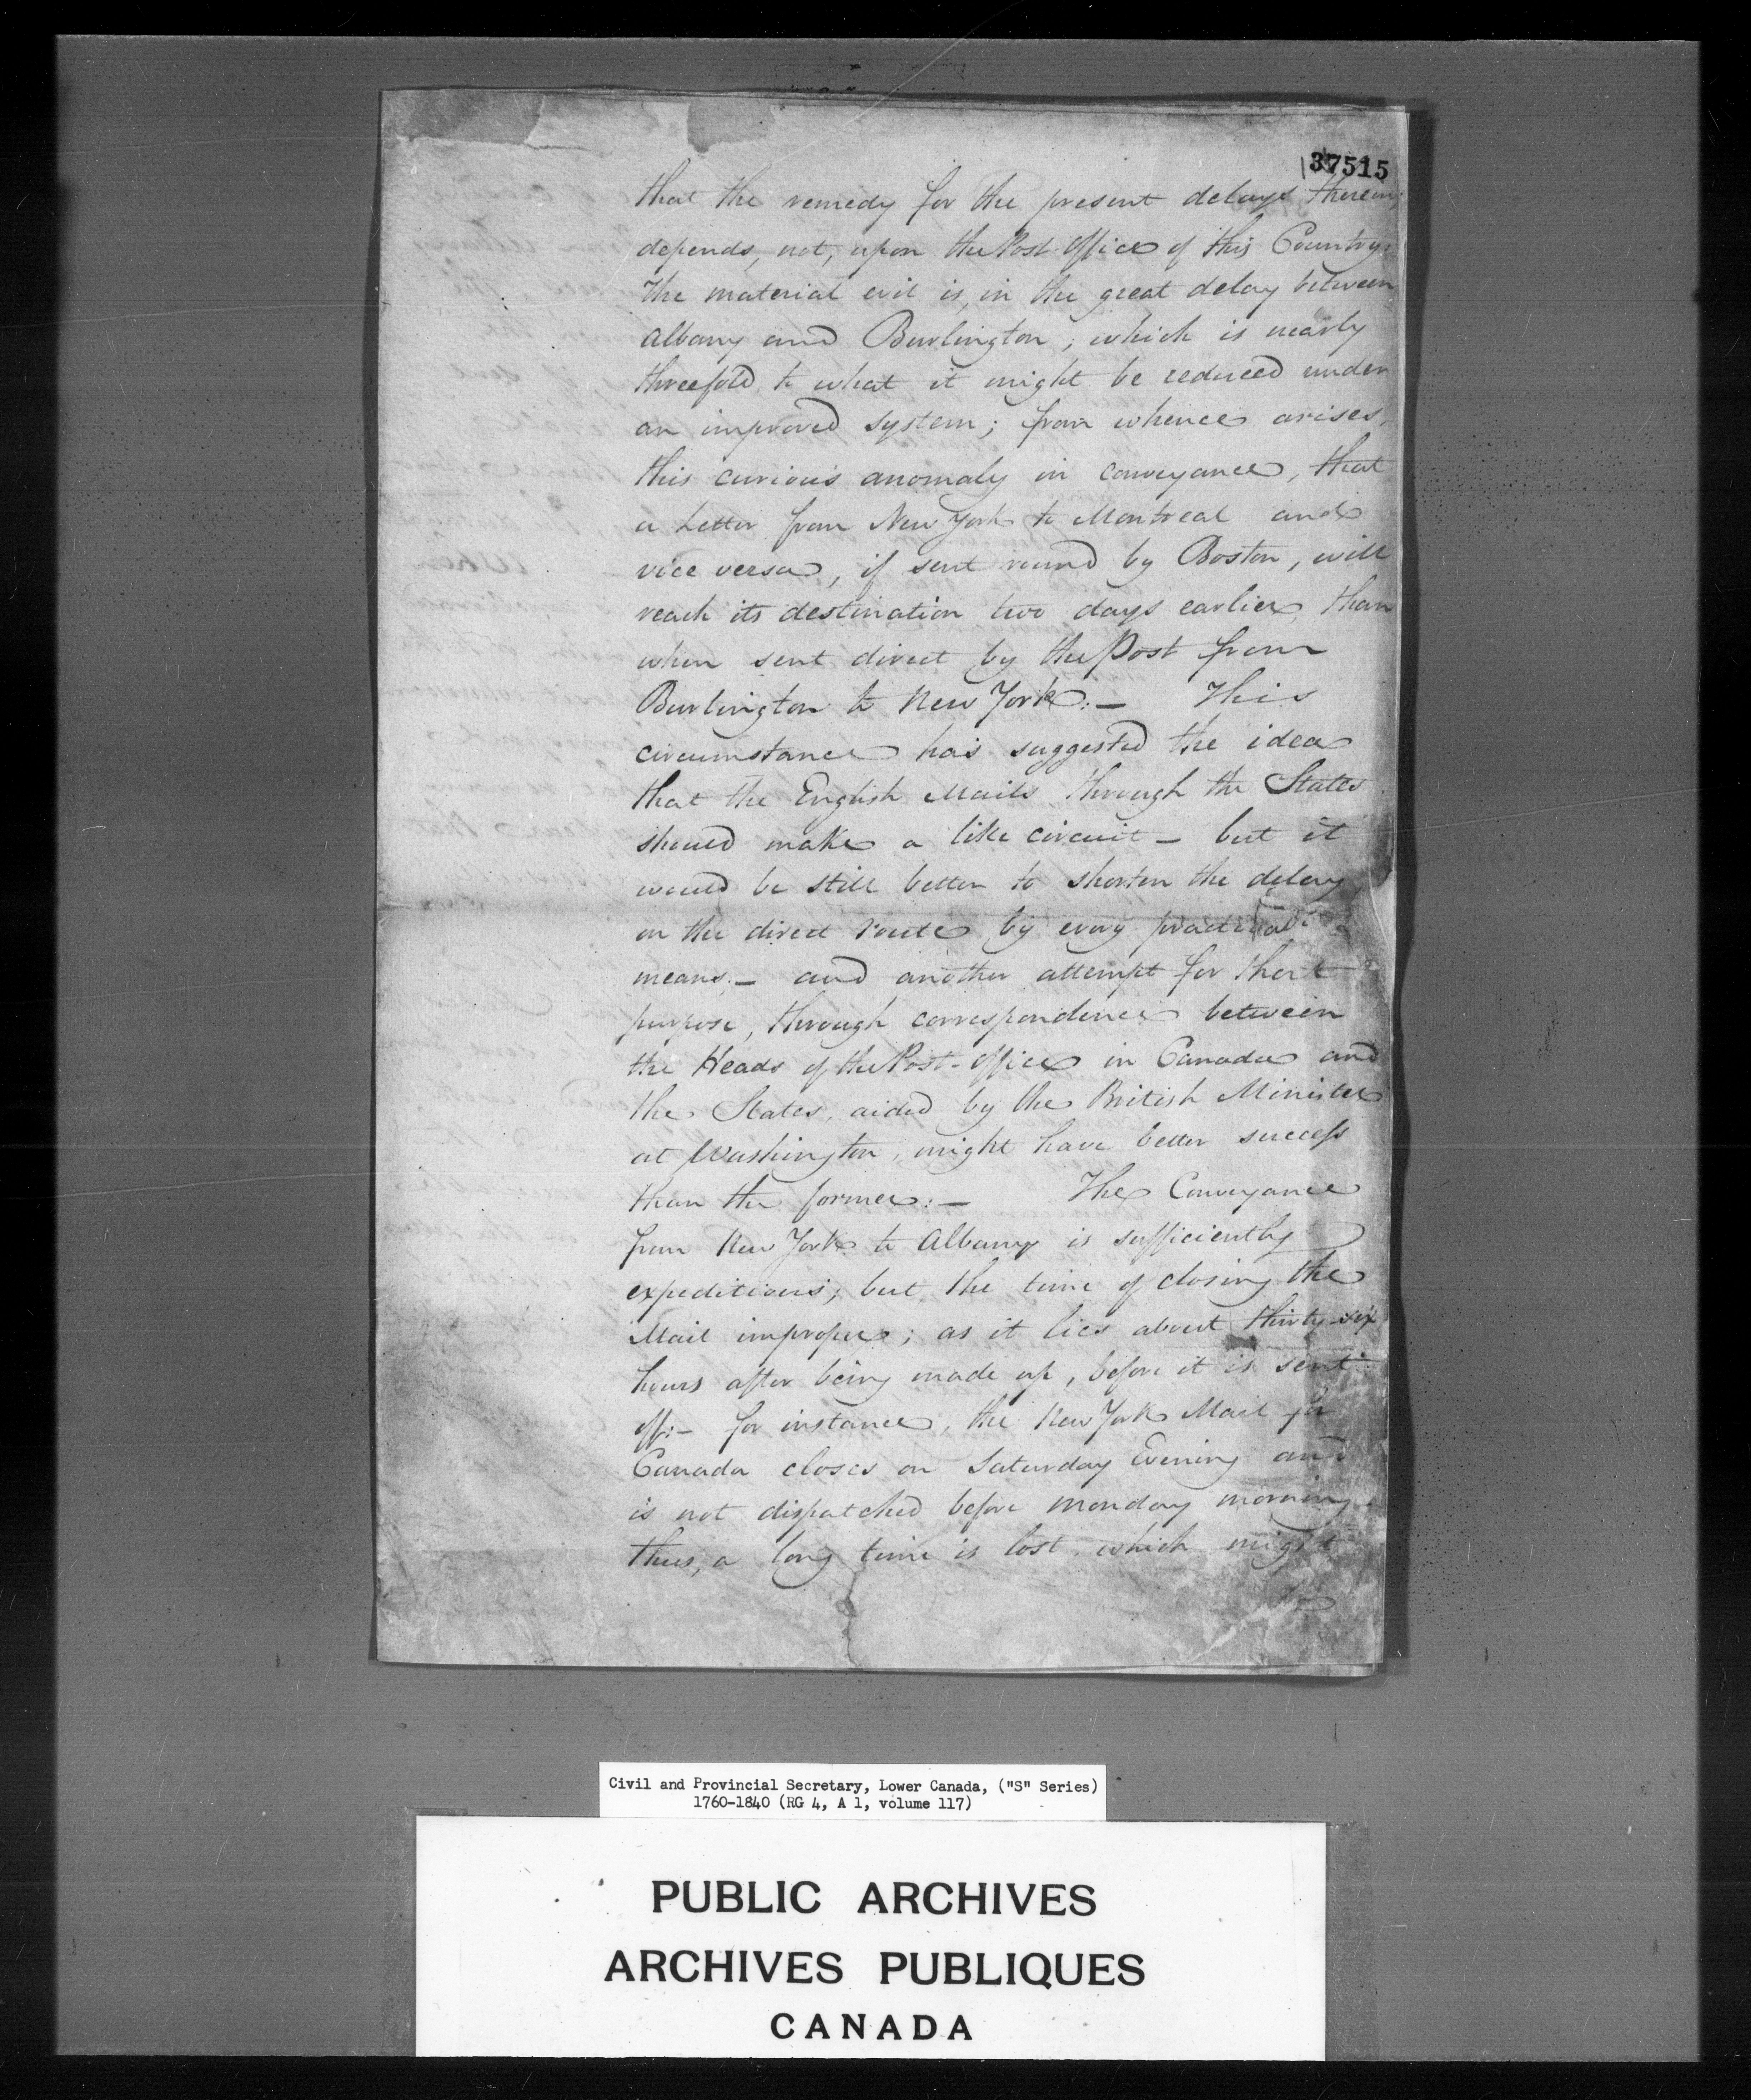 37515
that the remedy for the present delays therein,
depends, not, upon the Post Office of this Country.
The material evil is, in the great delay between
Albany and Burlington; which is nearly
threefold to what it might be reduced under
an improved system; from whence arises,
this curious anomaly in conveyance, that
a Letter from New York to Montreal and
vice versa, if sent round by Boston, will
reach its destination two days earlier, than
when sent direct by the Post from
Burlington to New York:— This
circumstance has suggested the idea
that the English Mails through the States
should make a like circuit — but it
would be still better to shorten the delay
on the direct route by every practical
means:— and another attempt for that
purpose, through correspondence between
the Heads of the Post-Office in Canada and
the States, aided by the British Minister
at Washington, might have better success
than the former:— The Conveyance
from New York to Albany is sufficiently
expeditious; but the time of closing the
Mail improper; as it lies about thirty-six
hours after being made up, before it is sent
off:— for instance, the New York Mail for
Canada closes on Saturday Evening and
is not dispatched before Monday morning.
thus, a long time is lost which might
Civil and Provincial Secretary, Lower Canada, ("S" Series)
1760-1840 (RG 4, A 1, volume 117)
PUBLIC ARCHIVES
ARCHIVES PUBLIQUES
CANADA